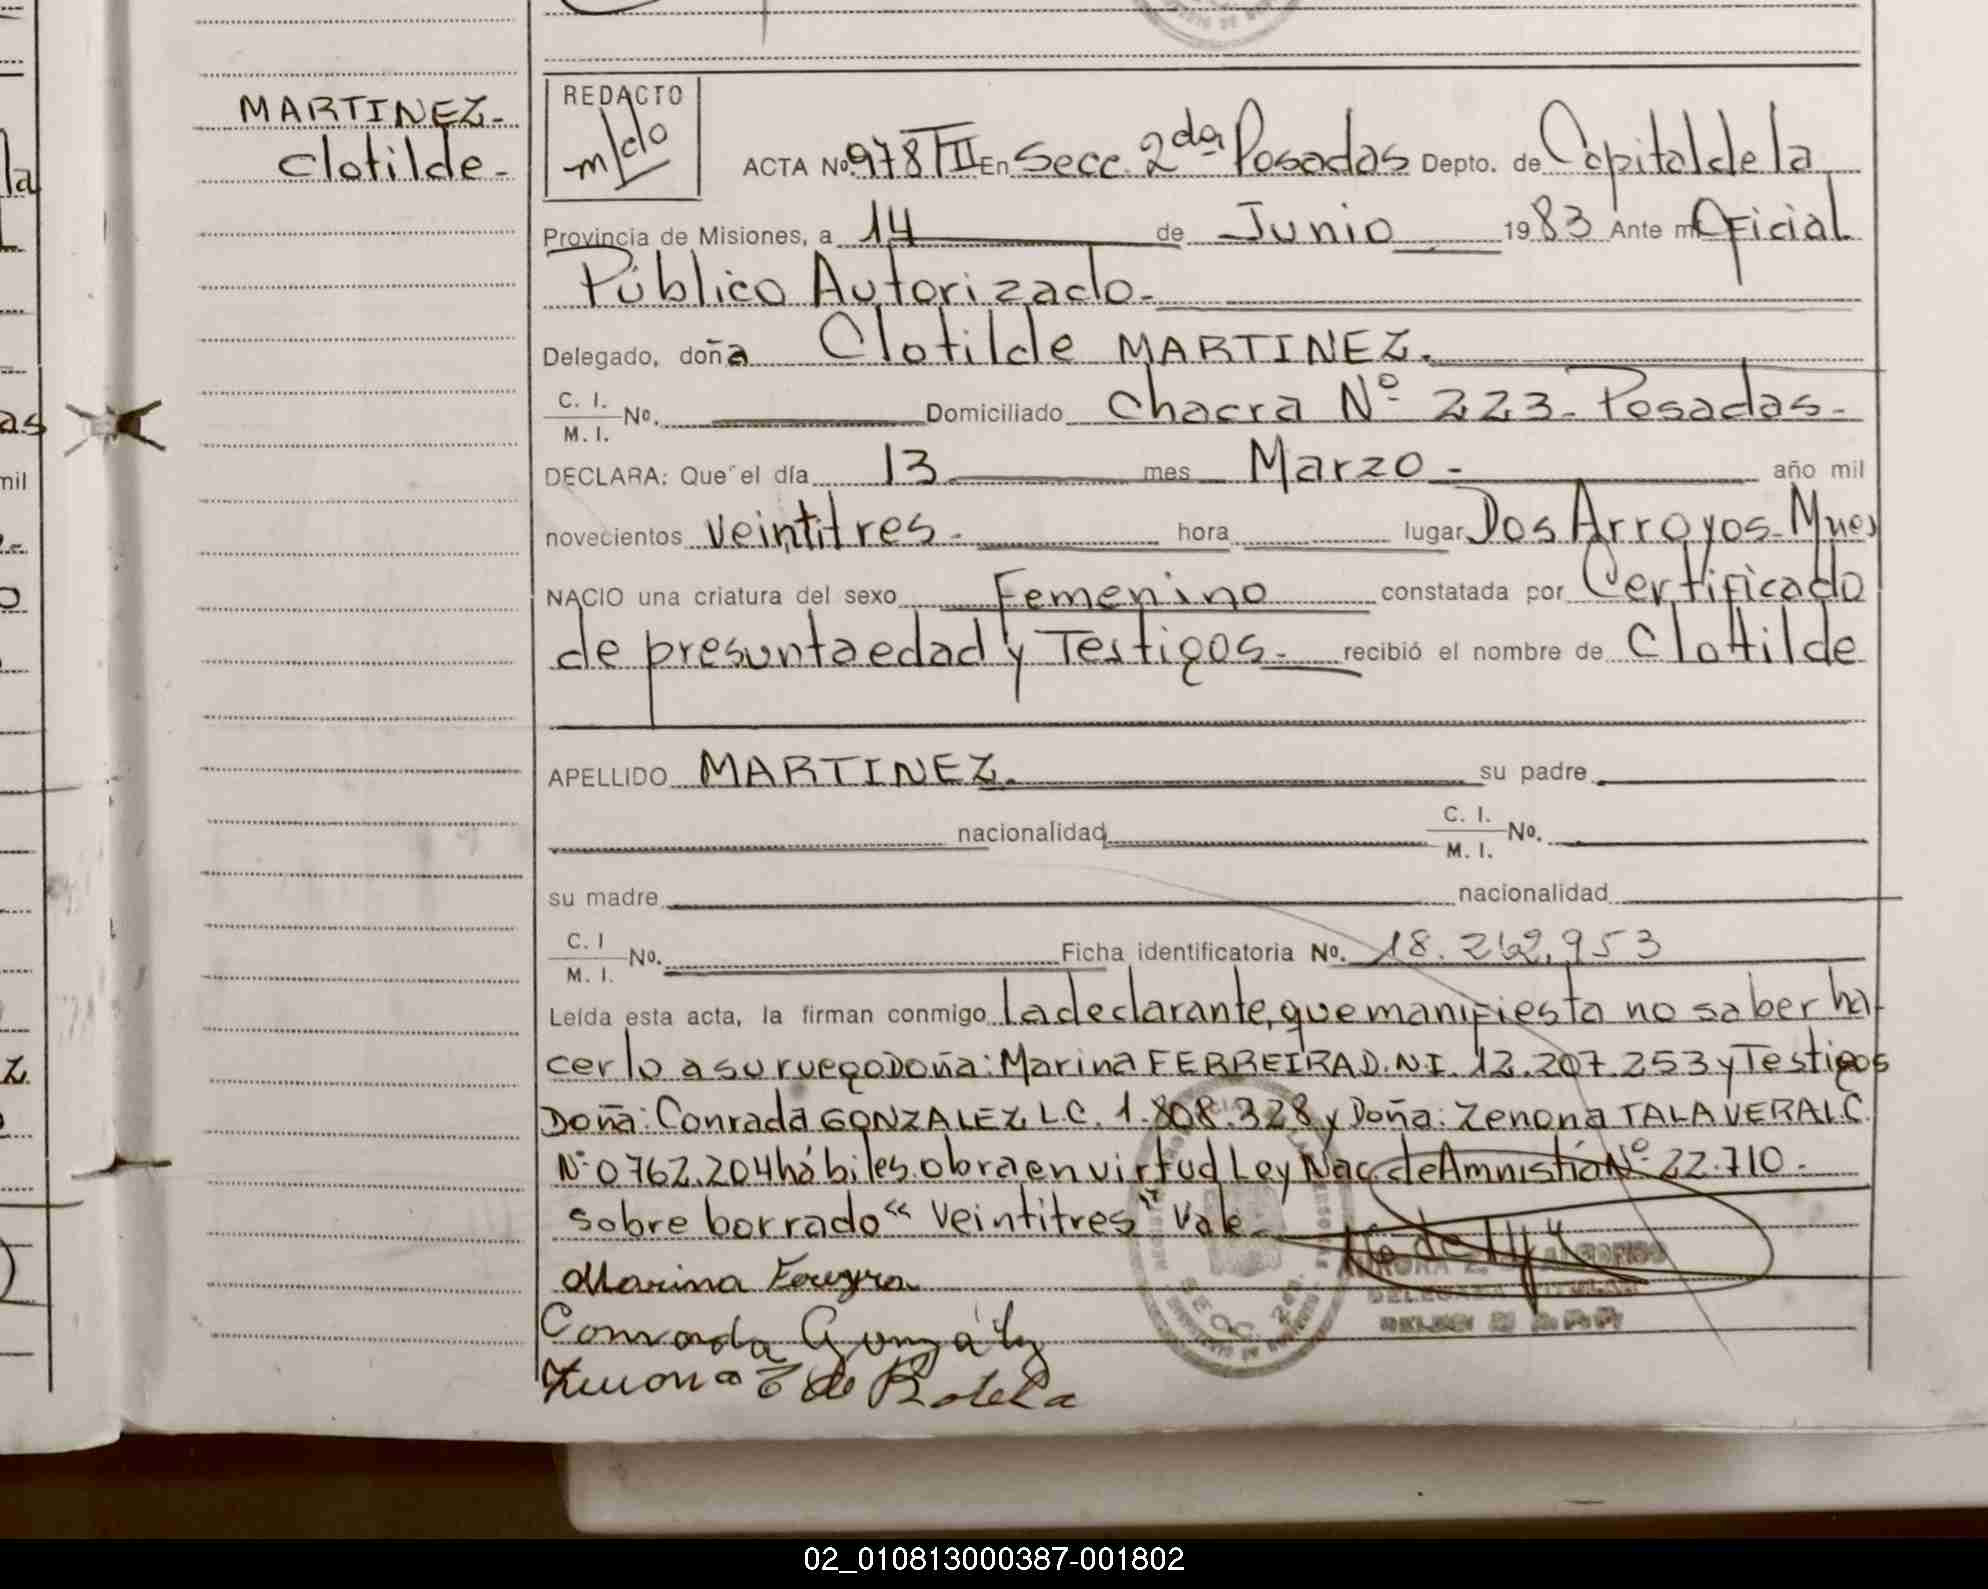 MARTINEZ-
Clotilde-
REDACTO
ACTA Nº 978 TII En Secc. 2da Posadas Depto. de Capital de la
Provincia de Misiones, a 14 de Junio 1983 Ante mí Oficial
Público Autorizado-
Delegado, doña Clotilde MARTINEZ.
C. I.
M. I. No. Domiciliado Chacra Nº 223- Posadas-
DECLARA: Que el día 13 mes Marzo- año mil
novecientos veintitres- hora lugar Dos Arroyos- Mnes
NACIO una criatura del sexo Femenino constatada por Certificado
de presunta edad y Testigos- recibió el nombre de Clotilde
APELLIDO MARTINEZ. su padre
nacionalidad C. I.
M. I. No.
su madre nacionalidad
C. I
M. I. No. Ficha identificatoria No. 18.262.953
Leída esta acta, la firman conmigo la declarante, que manifiesta no saber ha-
cerlo a su ruego Doña: Marina FERREIRA D.N.I. 12.207.253 y Testigos
Doña: Conrada GONZALEZ L.C. 1.808.328 y Doña: Zenona TALAVERA L.C.
Nº 0762.204 hábiles. obra en virtud Ley Nac. de Amnistía Nº 22.710-
sobre borrado "veintitres" vale-
Marina Ferreyra
Conrada González
Zenona T de Rotela
SECC. 2da.
DELEGADA TITULAR
02_010813000387-001802